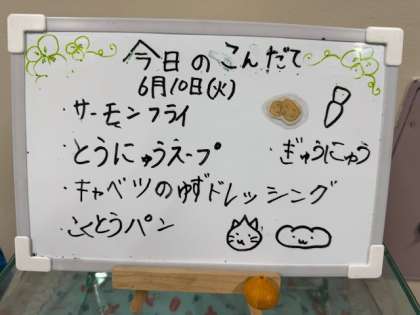 今日のこんだて
6月10日(火)
・サーモンフライ
・とうにゅうスープ ・ぎゅうにゅう
・キャベツのゆずドレッシング
・こくとうパン